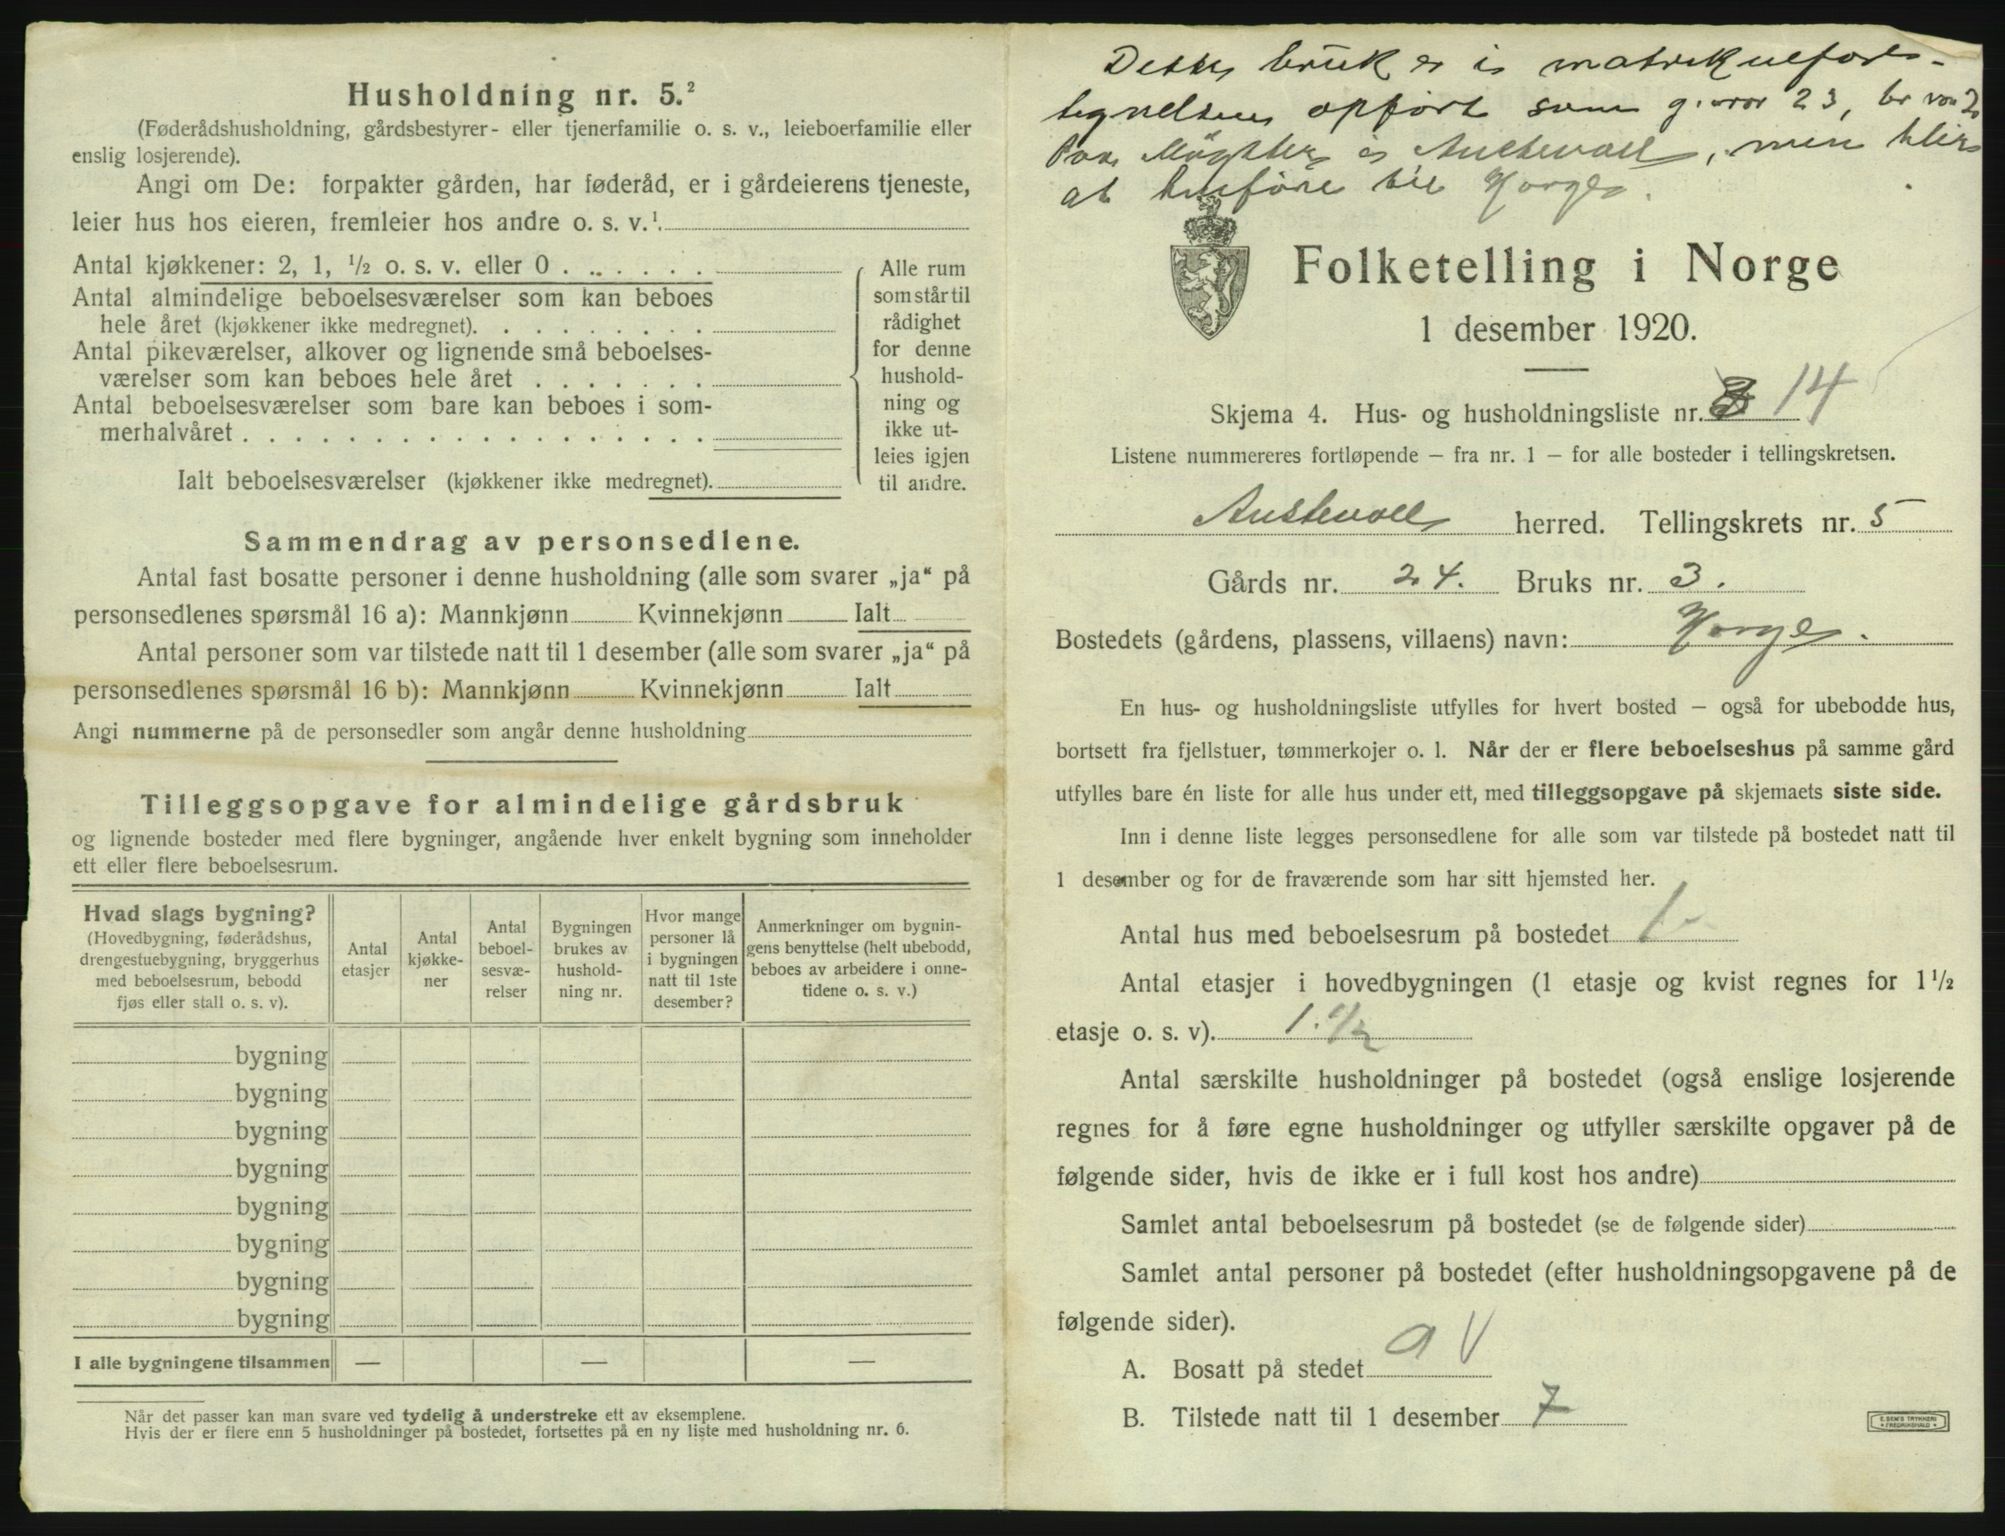 Husholdning nr. 5.²
(Føderådshusholdning, gårdsbestyrer- eller tjenerfamilie o. s. v., leieboerfamilie eller
enslig losjerende).
Angi om De: forpakter gården, har føderåd, er i gårdeierens tjeneste,
leier hus hos eieren, fremleier hos andre o. s. v.¹
Antal kjøkkener: 2, 1, ½ o. s. v. eller 0
Antal almindelige beboelsesværelser som kan beboes
hele året (kjøkkener ikke medregnet).
Antal pikeværelser, alkover og lignende små beboelses-
værelser som kan beboes hele året
Antal beboelsesværelser som bare kan beboes i som-
merhalvåret
Alle rum
som står til
rådighet
for denne
hushold-
ning og
ikke ut-
leies igjen
til andre.
Ialt beboelsesværelser (kjøkkener ikke medregnet).
Sammendrag av personsedlene.
Antal fast bosatte personer i denne husholdning (alle som svarer „ja“ på
personsedlenes spørsmål 16 a): Mannkjønn Kvinnekjønn Ialt
Antal personer som var tilstede natt til 1 desember (alle som svarer „ja“ på
personsedlenes spørsmål 16 b): Mannkjønn Kvinnekjønn Ialt
Angi nummerne på de personsedler som angår denne husholdning
Tilleggsopgave for almindelige gårdsbruk
og lignende bosteder med flere bygninger, angående hver enkelt bygning som inneholder
ett eller flere beboelsesrum.
Hvad slags bygning?
(Hovedbygning, føderådshus,
drengestuebygning, bryggerhus
med beboelsesrum, bebodd
fjøs eller stall o. s. v).
Antal
etasjer
Antal
kjøkke-
ner
Antal
beboel-
sesvæ-
relser
Bygningen
brukes av
hushold-
ning nr.
Hvor mange
personer lå
i bygningen
natt til 1ste
desember?
Anmerkninger om bygnin-
gens benyttelse (helt ubebodd,
beboes av arbeidere i onne-
tidene o. s. v.)
bygning
bygning
bygning
bygning
bygning
bygning
bygning
bygning
I alle bygningene tilsammen — — —
Når det passer kan man svare ved tydelig å understreke ett av eksemplene.
Hvis der er flere enn 5 husholdninger på bostedet, fortsettes på en ny liste med husholdning nr. 6.
Dette bruk er i matrikulfor-
tegnelsen opført som g. nr 23, br nr 2
Møgster Austevoll, men blir
at henføre til Horge.
Folketelling i Norge
1 desember 1920.
Skjema 4. Hus- og husholdningsliste nr. 14
Listene nummereres fortløpende – fra nr. 1 – for alle bosteder i tellingskretsen.
Austevoll herred. Tellingskrets nr. 5
Gårds nr. 24. Bruks nr. 3.
Bostedets (gårdens, plassens, villaens) navn: Horge.
En hus- og husholdningsliste utfylles for hvert bosted – også for ubebodde hus,
bortsett fra fjellstuer, tømmerkojer o. l. Når der er flere beboelseshus på samme gård
utfylles bare én liste for alle hus under ett, med tilleggsopgave på skjemaets siste side.
Inn i denne liste legges personsedlene for alle som var tilstede på bostedet natt til
1 desember og for de fraværende som har sitt hjemsted her.
Antal hus med beboelsesrum på bostedet 1
Antal etasjer i hovedbygningen (1 etasje og kvist regnes for 1½
etasje o. s. v). 1.½
Antal særskilte husholdninger på bostedet (også enslige losjerende
regnes for å føre egne husholdninger og utfyller særskilte opgaver på de
følgende sider, hvis de ikke er i full kost hos andre)
Samlet antal beboelsesrum på bostedet (se de følgende sider)
Samlet antal personer på bostedet (efter husholdningsopgavene på de
følgende sider).
A. Bosatt på stedet 9 V
B. Tilstede natt til 1 desember 7
E. SEM'S TRYKKERI
FREDRIKSHALD